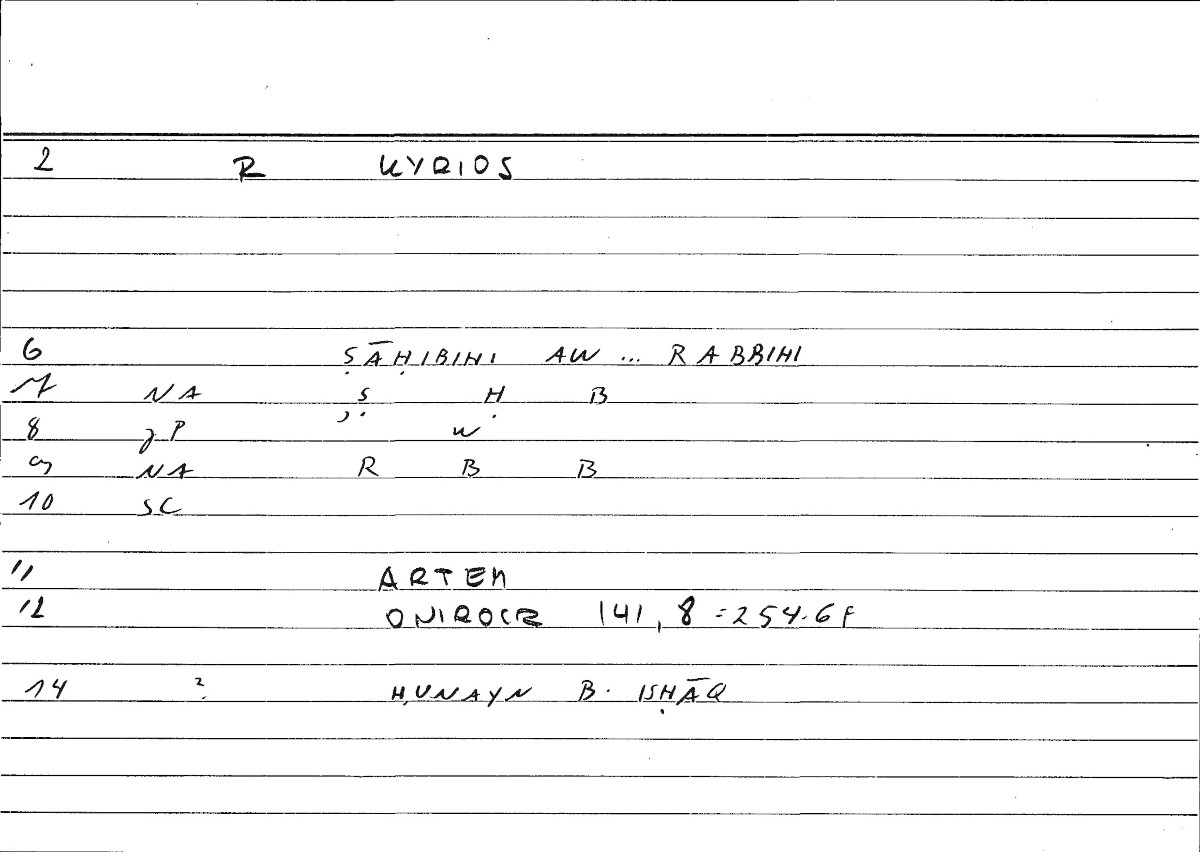 2 R KYRIOS
6 ṢĀḤIBIHI AW ... RABBIHI
7 NA Ṣ Ḥ B
8 JP ʾ W
9 NA R B B
10 SC
11 ARTEM
12 ONIROCR 141, 8 = 254.6f
14 ? ḤUNAYN B. ISḤĀQ